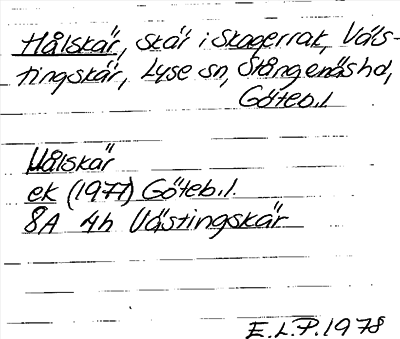 Hålskär, skär i Skagerrak, Väs-
tingskär, Lyse sn, Stångenäs hd,
Göteb.l.
Hålskär
ek (1977) Göteb.l.
8A 4h Västingskär
E.L.P. 1978